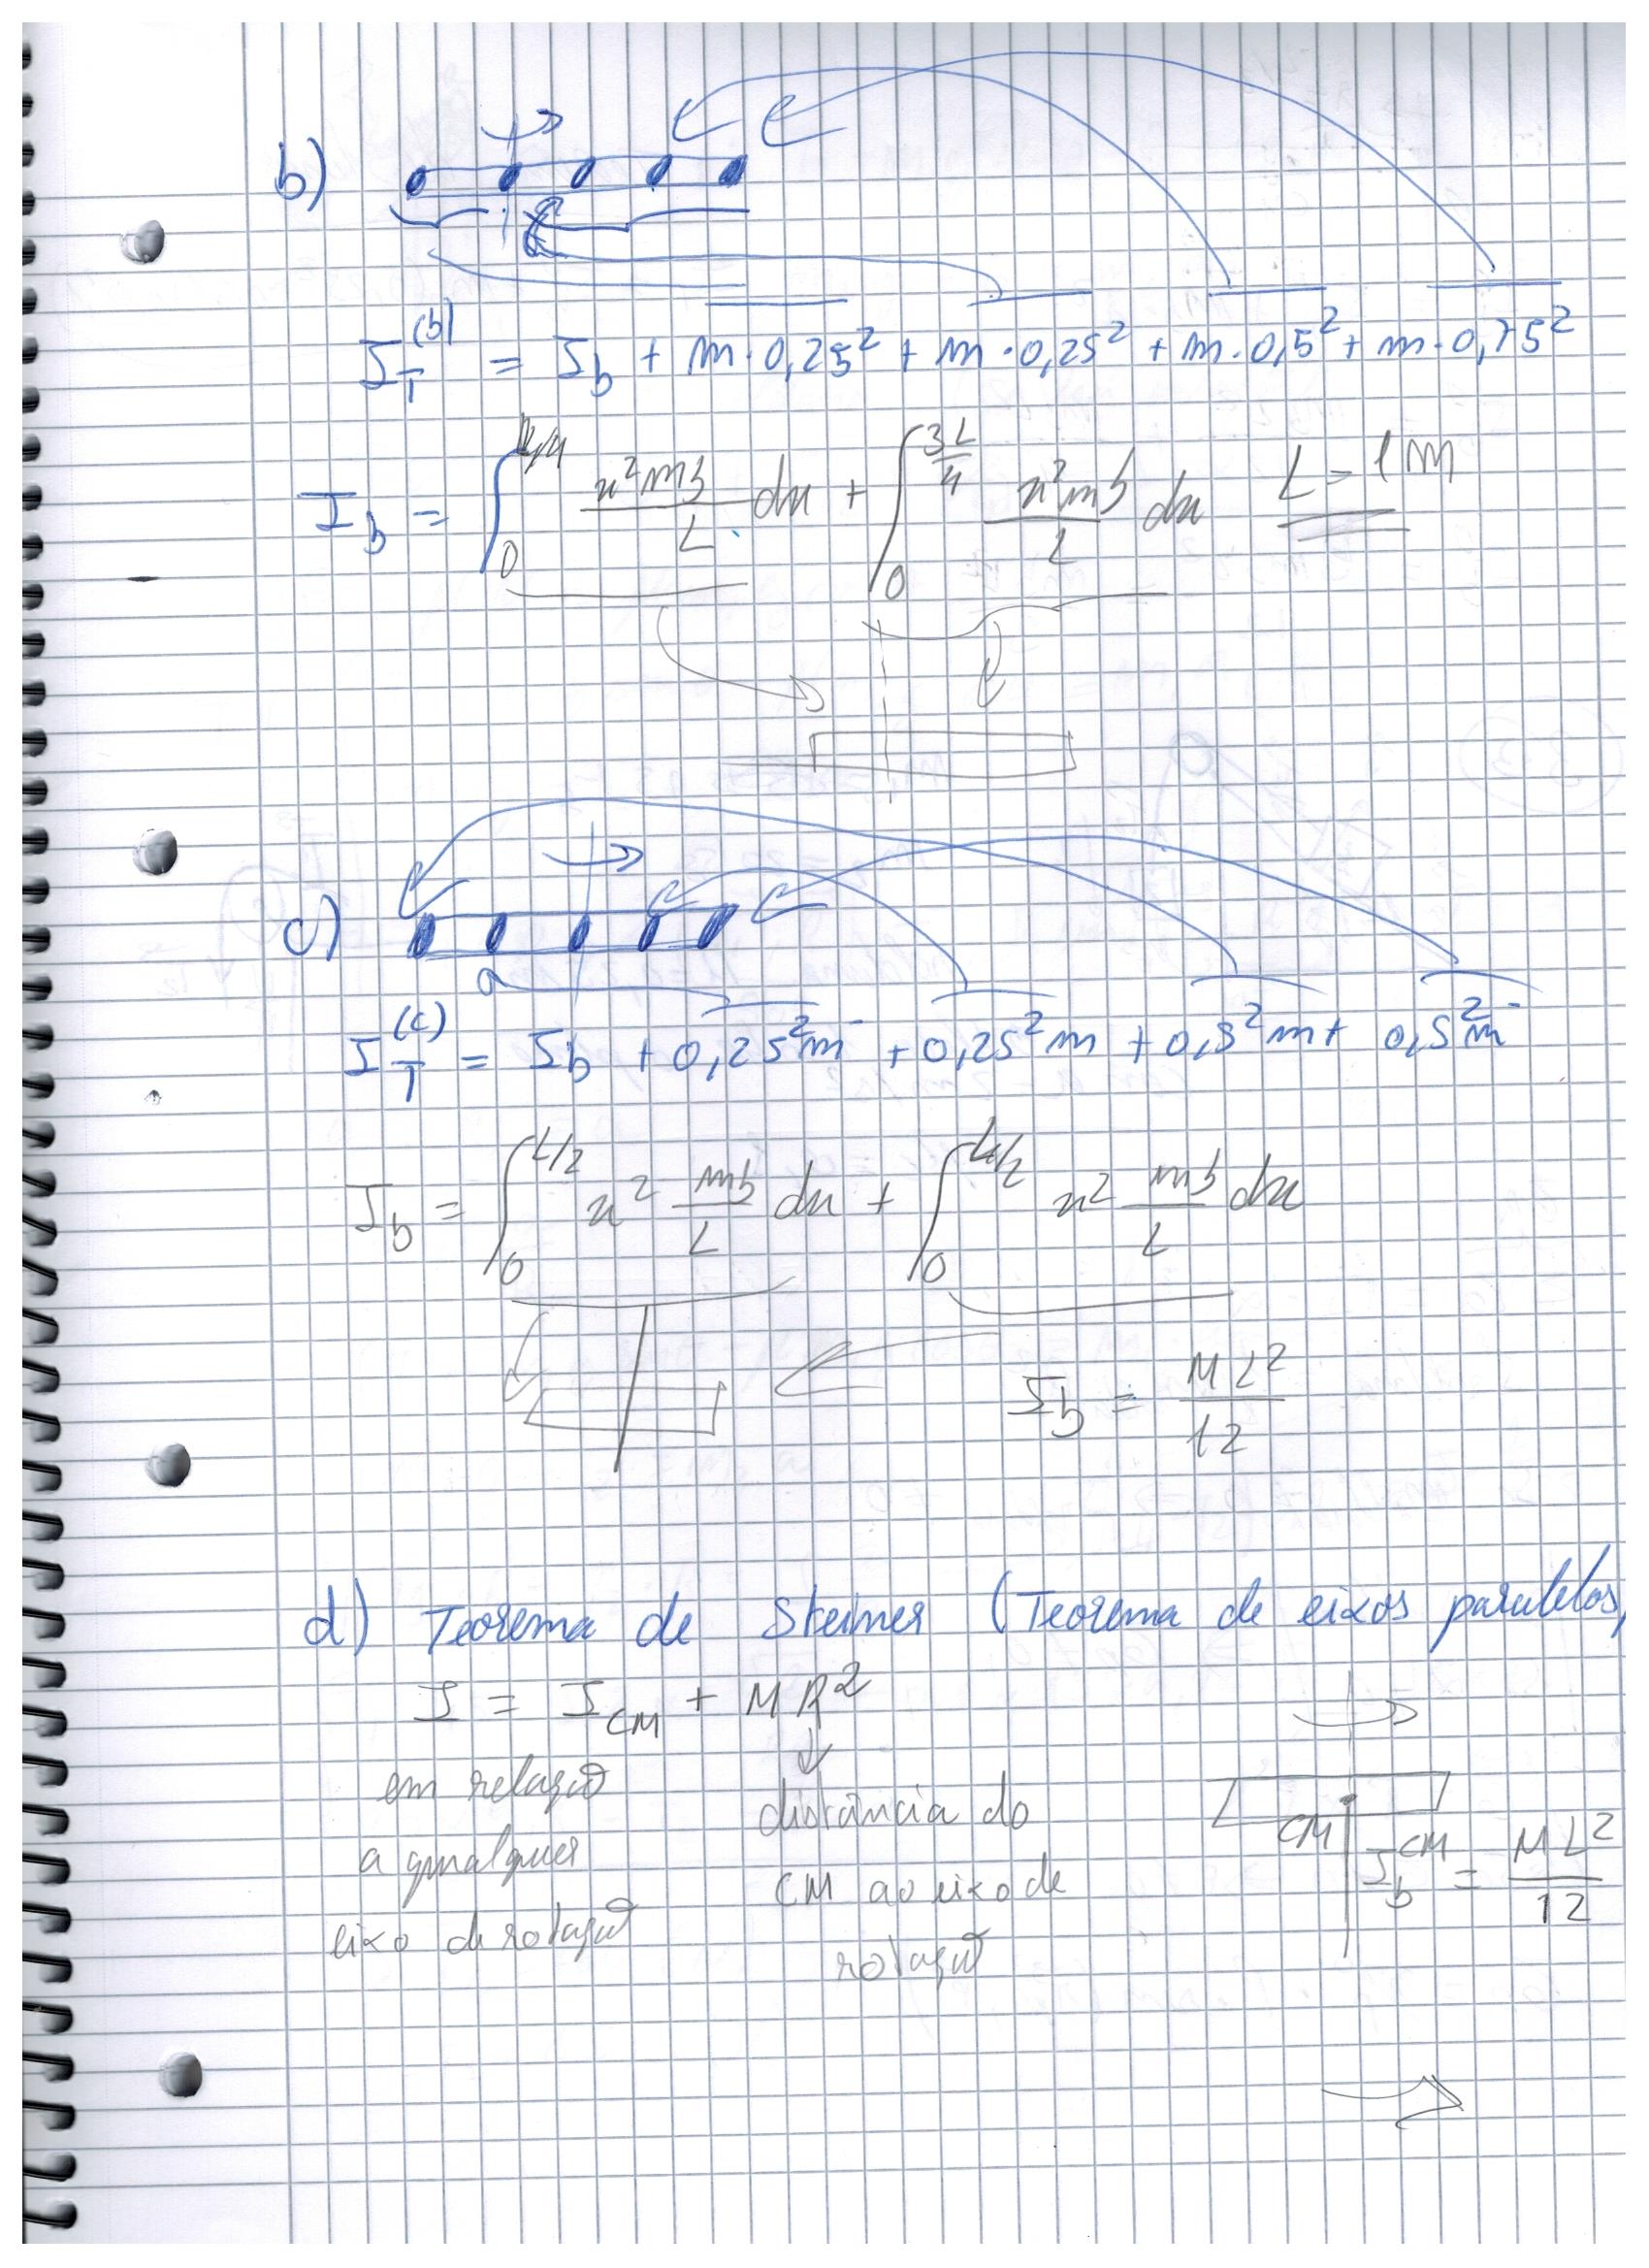 b)
I_T^(b) = I_b + m·0,25² + m·0,25² + m·0,5² + m·0,75²
I_b = ∫_0^{L/4} x² m_b / L dx + ∫_0^{3L/4} x² m_b / L dx L = 1 m
c)
I_T^(c) = I_b + 0,25² m + 0,25² m + 0,5² m + 0,5² m
I_b = ∫_0^{L/2} x² m_b / L dx + ∫_0^{L/2} x² m_b / L dx
I_b = M L² / 12
d) Teorema de Steiner (Teorema de eixos paralelos)
I = I_CM + M R²
em relação
a qualquer
eixo de rotação
distância do
CM ao eixo de
rotação
CM
I_b^CM = M L² / 12